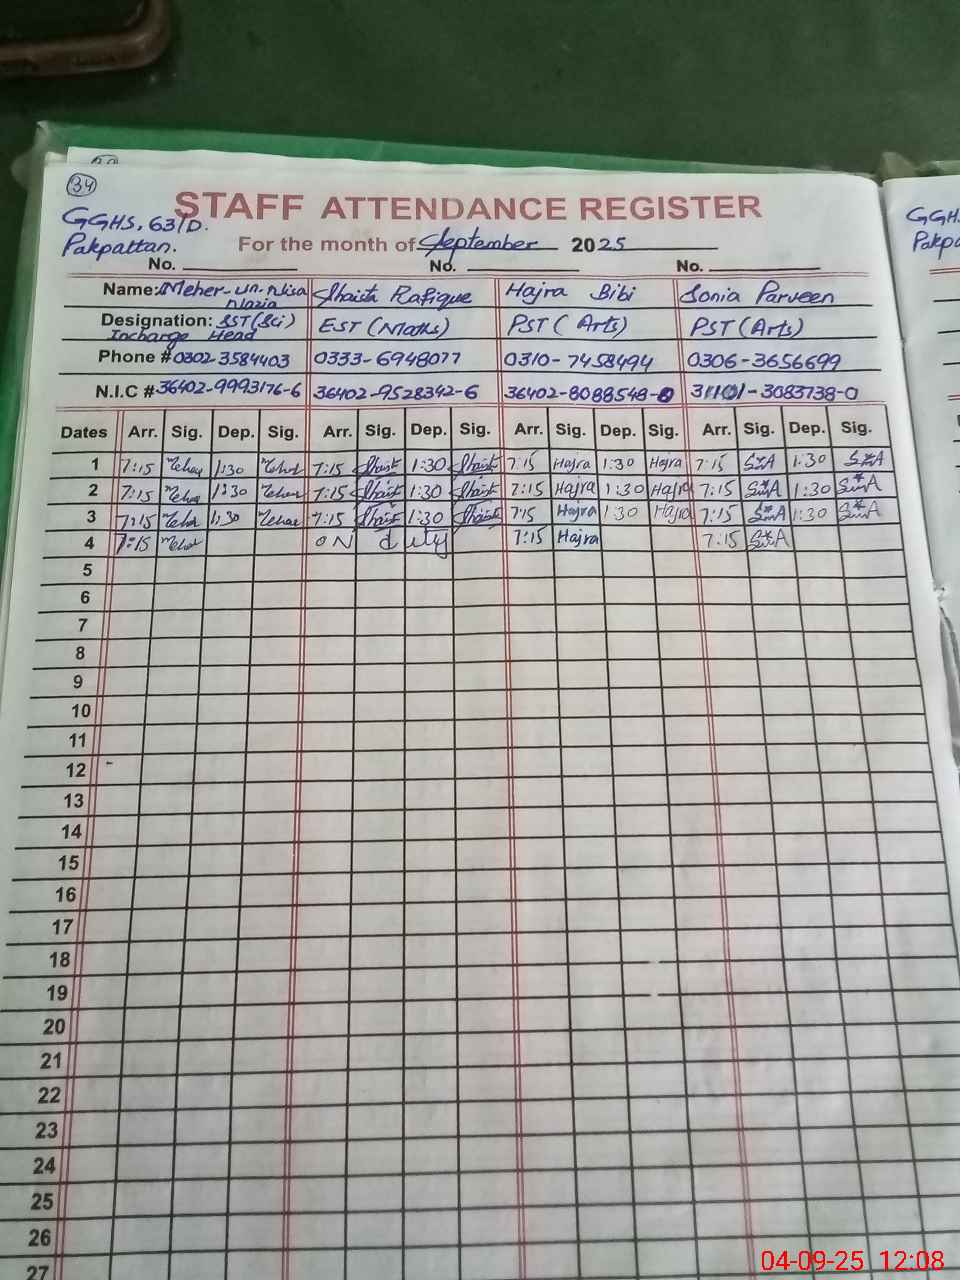 34
STAFF ATTENDANCE REGISTER
GGHS, 63/D.
Pakpattan.
For the month of September 2025
No. No. No.
Name: Meher-un-Nisa Nazia Shaista Rafique Hajra Bibi Sonia Parveen
Designation: SST(Sci) Incharge Head EST (Maths) PST (Arts) PST (Arts)
Phone # 0302-3584403 0333-6948077 0310-7458494 0306-3656699
N.I.C # 36402-9993176-6 36402-9528342-6 36402-8088548-0 31101-3083738-0
Dates Arr. Sig. Dep. Sig. Arr. Sig. Dep. Sig. Arr. Sig. Dep. Sig. Arr. Sig. Dep. Sig.
1 7:15 1:30 7:15 Shaist 1:30 Shaist 7:15 Hajra 1:30 Hajra 7:15 1:30
2 7:15 1:30 7:15 Shaist 1:30 Shaist 7:15 Hajra 1:30 Hajra 7:15 1:30
3 7:15 1:30 7:15 Shaist 1:30 Shaist 7:15 Hajra 1:30 Hajra 7:15 1:30
4 7:15 ON duty 7:15 Hajra 7:15
5
6
7
8
9
10
11
12
13
14
15
16
17
18
19
20
21
22
23
24
25
26
27
GGHS
04-09-25 12:08